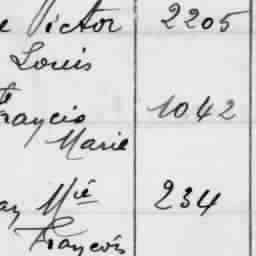 Victor 2205
Louis
Francis 1042
Marie
Mie 234
François